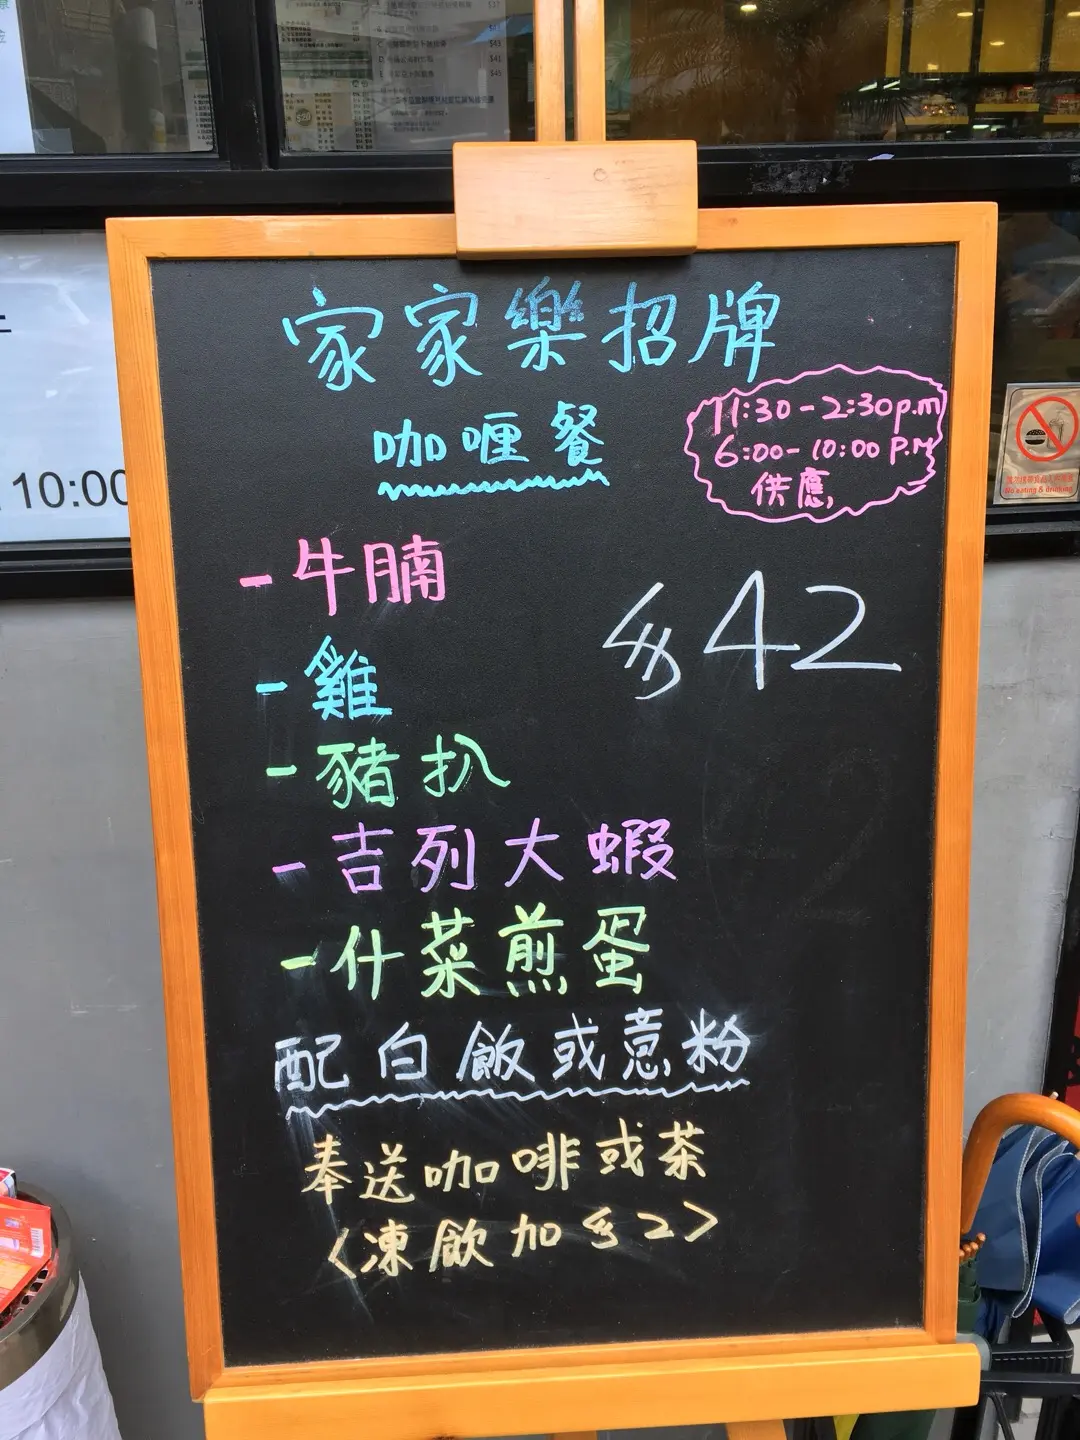 $37
$41
$43
$41
$45
10:00
家家樂招牌
咖喱餐
11:30-2:30p.m
6:00-10:00 P.M
供應
-牛腩
$42
-雞
-豬扒
-吉列大蝦
-什菜煎蛋
配白飯或意粉
奉送咖啡或茶
<凍飲加$2>
No eating & drinking